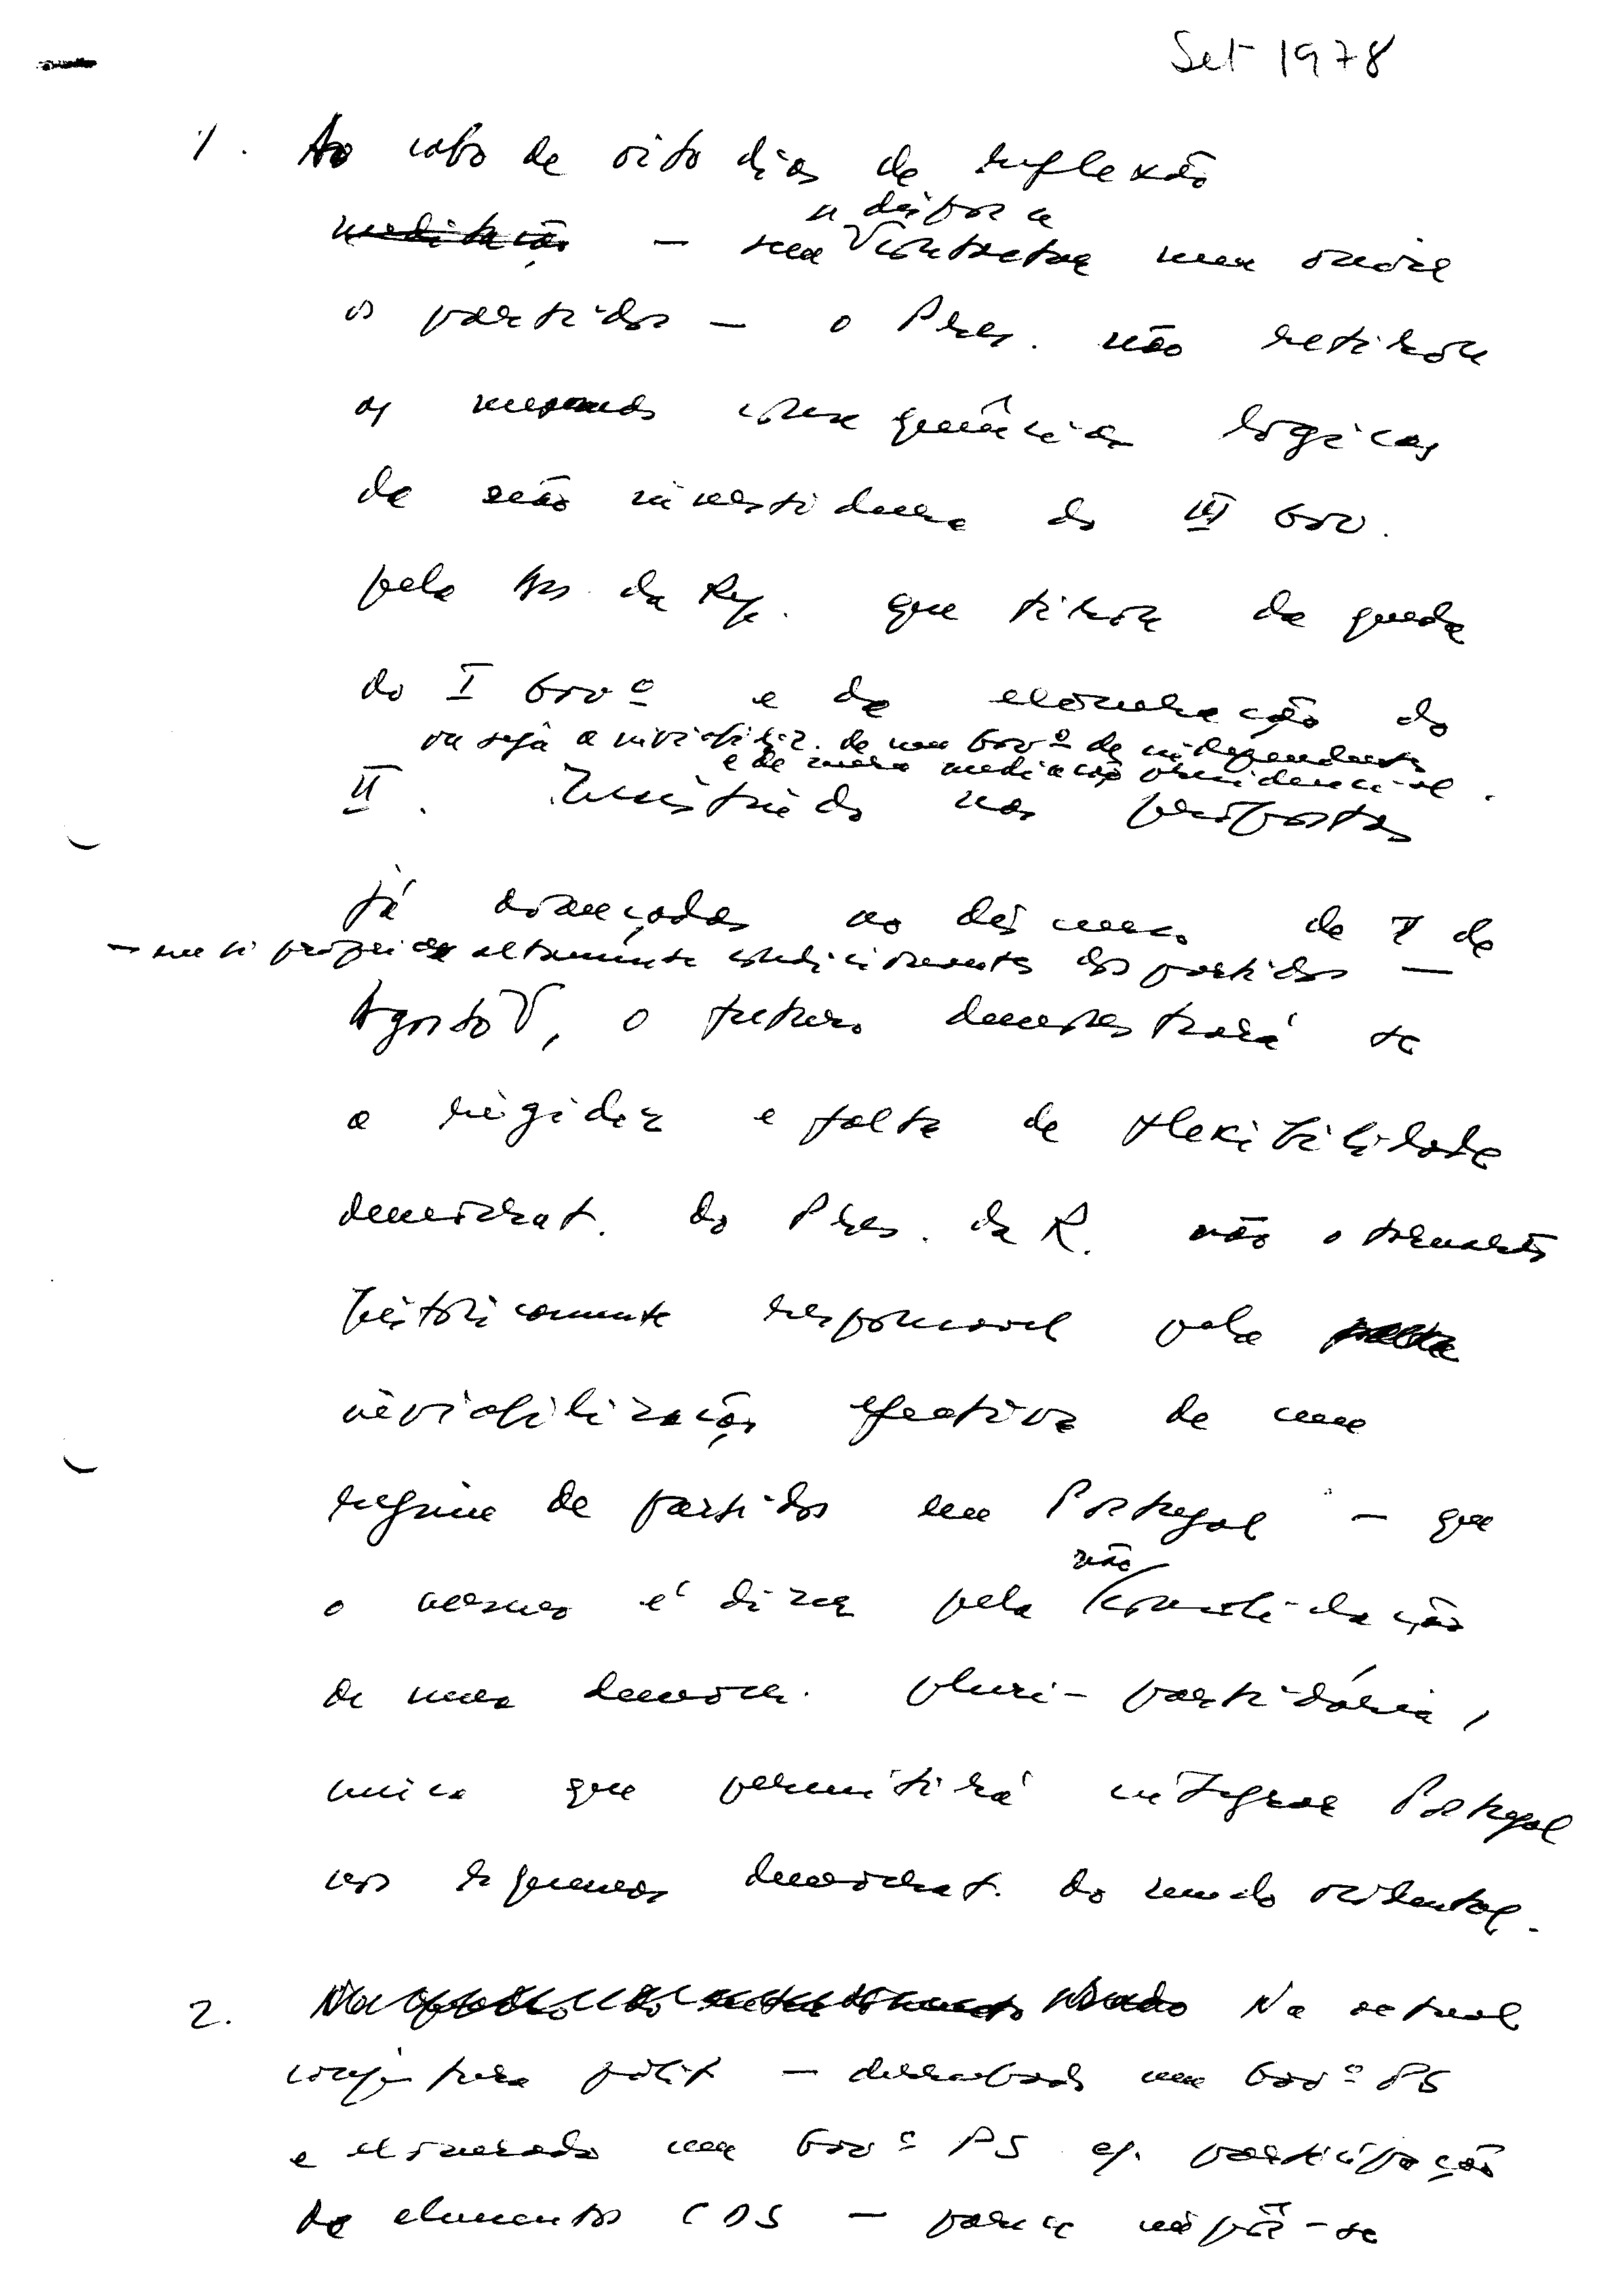 Set 1978
1. Ao cabo de oito dias de reflexão
meditação — sem contactar nem ouvir
os partidos — o Pres. não retirou
as mesmas consequências logicas
da não investidura do III Gov.
pela Ass. da Rep. que tirou da queda
do I Govº e da exoneração do
ou seja a inviabiliz. de um Govº de independentes
e de mera mediação presidencial.
II. Insistindo nas propostas
já avançadas no discurso de de
— em si próprias altamente condicionantes dos partidos —
Agosto, o futuro demonstrará se
a rigidez e falta de flexibilidade
democrat. do Pres. da R. não o tornarão
históricamente responsavel pela
inviabilização efectiva de um
regime de partidos em Portugal — que
não
o mesmo é dizer pela consolidação
de uma democr. pluri-partidária,
unica que permitirá integrar Portugal
nos esquemas democrat. do mundo ocidental.
2. Na actual
conjuntura polit — derrubado um Govº PS
e exonerado um Govº PS c/. participação
de elementos CDS — parece impôr-se